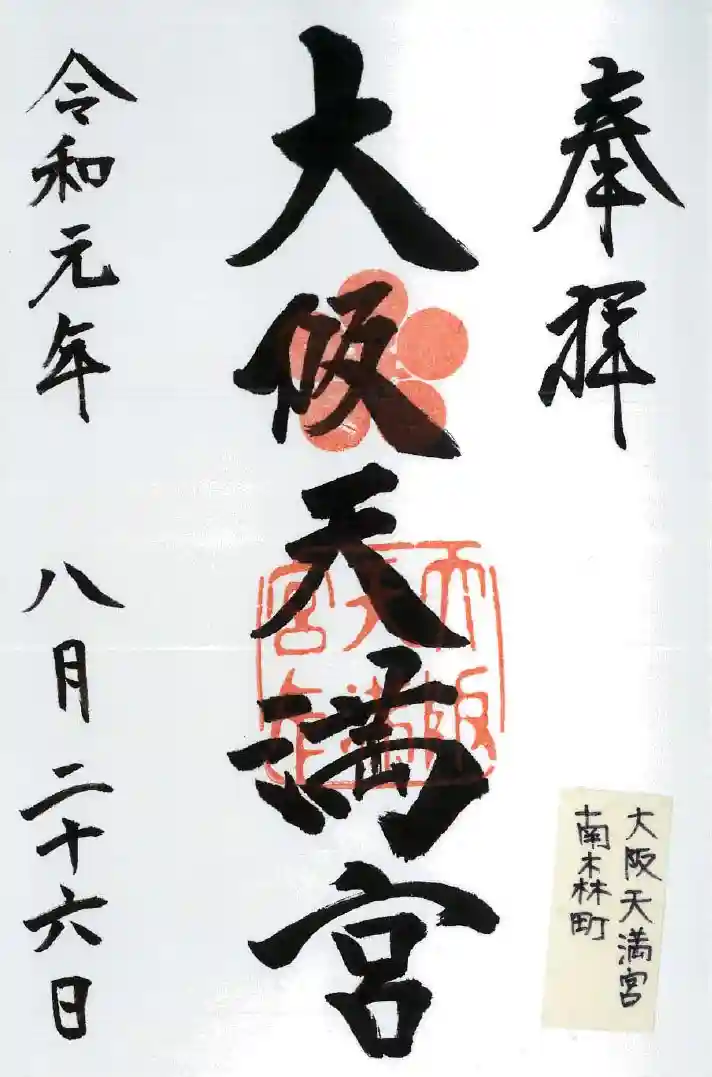 奉拝
大阪天満宮
令和元年 八月二十六日
大阪天満宮
大阪天満宮
南森町